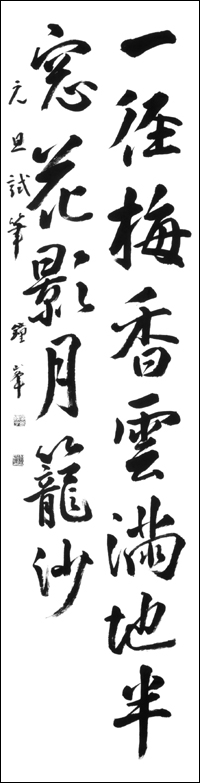 一徑梅香雲満地半
窓花影月籠沙
元旦試筆 鐘峯